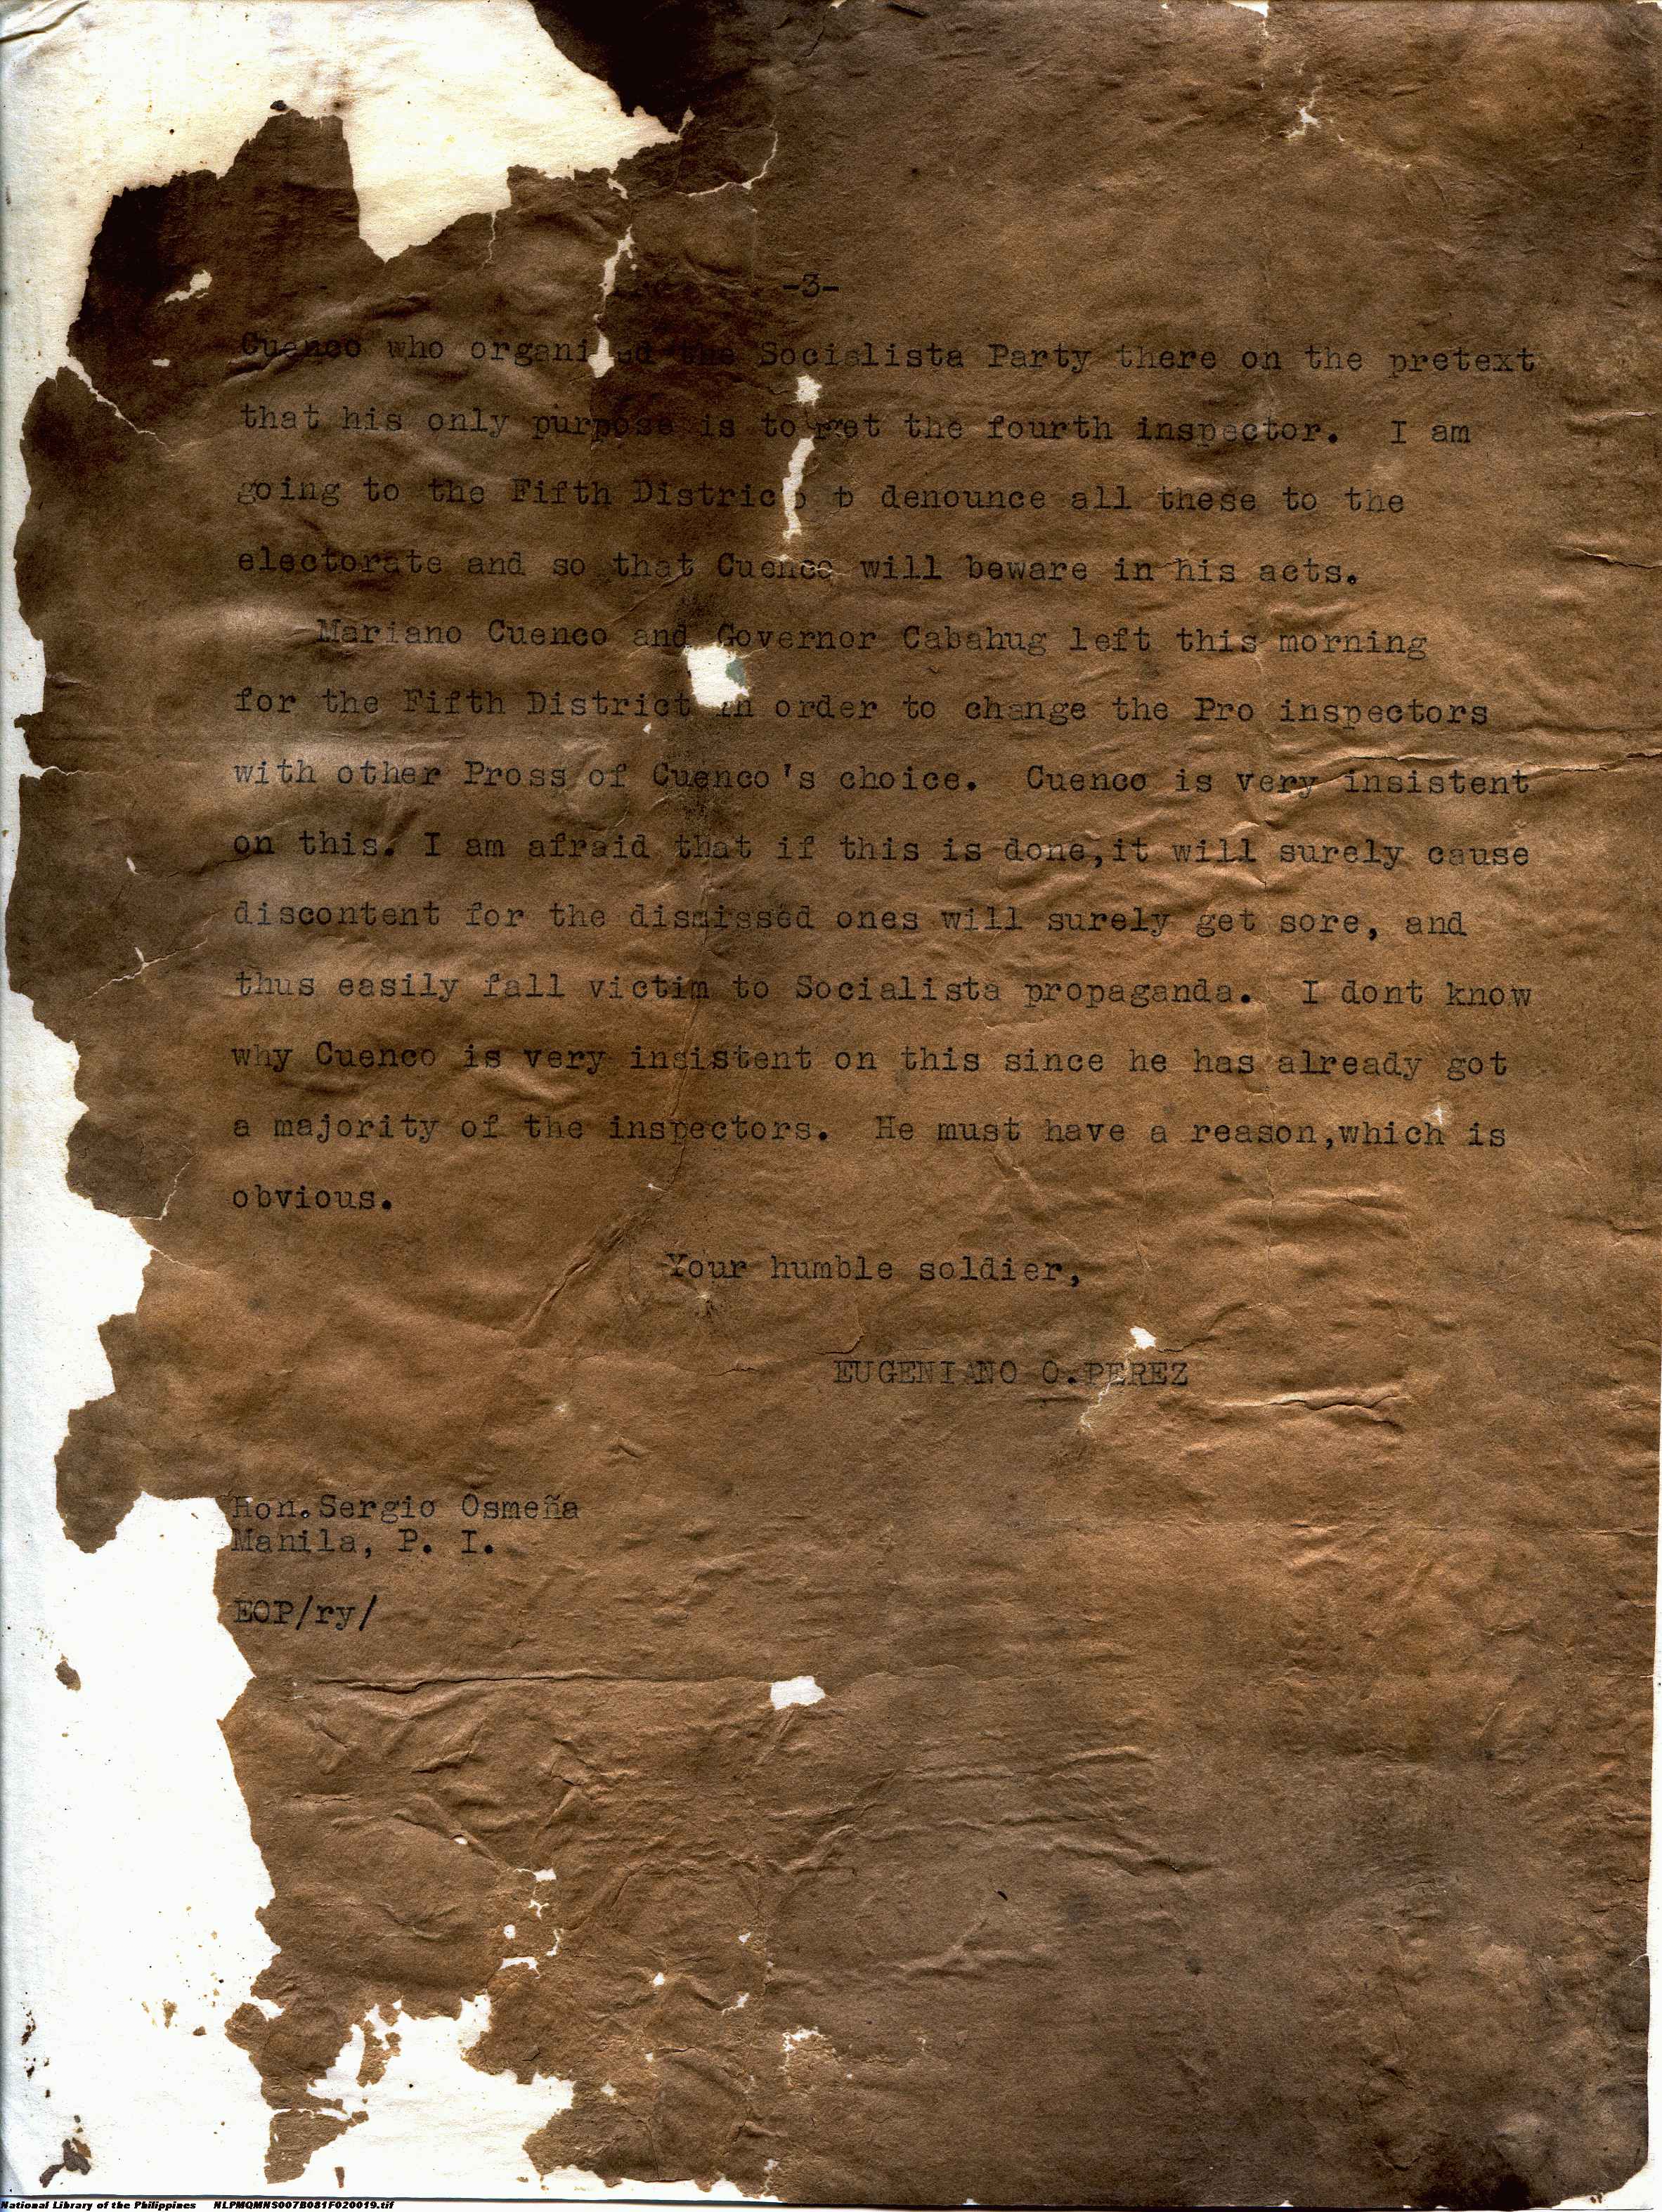 -3-
Cuenco who organi ed the Socialista Party there on the pretext
that his only purpose is to get the fourth inspector. I am
going to the Fifth Distric to denounce all these to the
electorate and so that Cuenco will beware in his acts.
Mariano Cuenco and Governor Cabahug left this morning
for the Fifth District in order to change the Pro inspectors
with other Pross of Cuenco's choice. Cuenco is very insistent
on this. I am afraid that if this is done,it will surely cause
discontent for the dismissed ones will surely get sore, and
thus easily fall victim to Socialista propaganda. I dont know
why Cuenco is very insistent on this since he has already got
a majority of the inspectors. He must have a reason,which is
obvious.
Your humble soldier,
EUGENIANO O.PEREZ
Hon.Sergio Osmeña
Manila, P. I.
EOP/ry/
National Library of the Philippines NLPMQMNS007B081F020019.tif